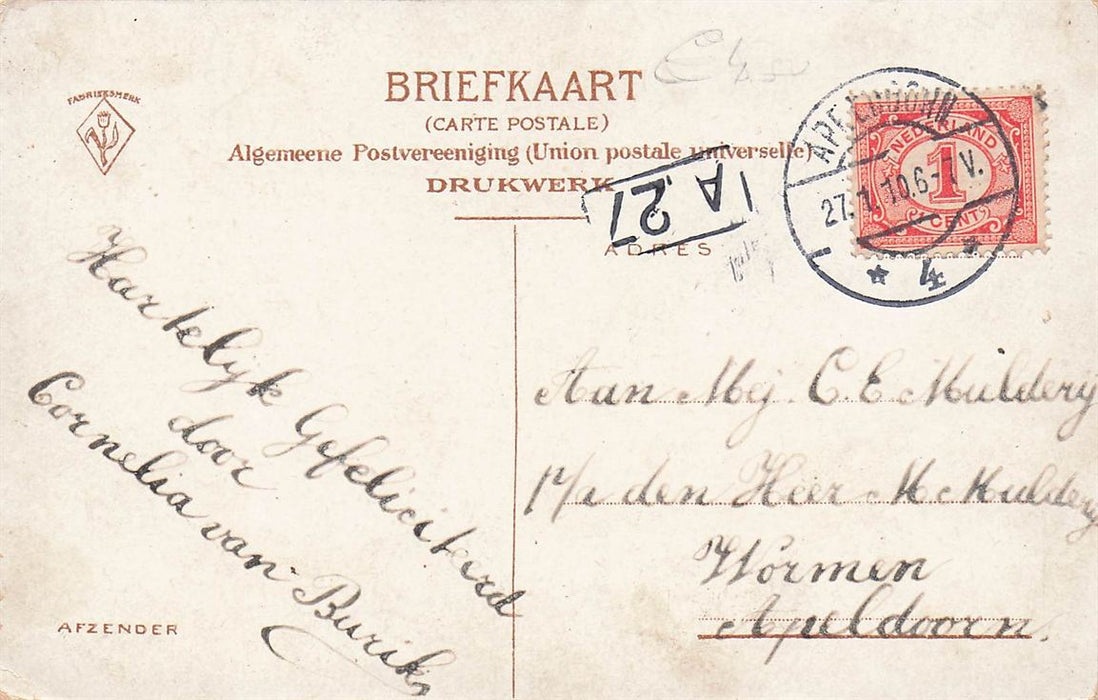 BRIEFKAART
(CARTE POSTALE)
Algemeene Postvereeniging (Union postale universelle)
DRUKWERK
FABRIEKSMERK
ADRES
1A 27
APELDOORN
27.1.10.6-7V.
4
NEDERLAND
1
CENT
Hartelijk Gefeliciteerd
door
Cornelia van Burik
Aan Mej. C. E. Mulderij
p/a den Heer M Mulderij
Wormen
Apeldoorn.
AFZENDER